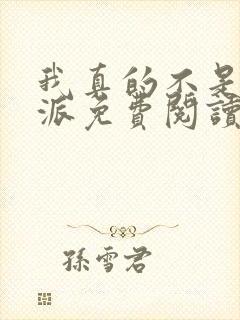 我真的不是
派免費閱讀
孫雪君